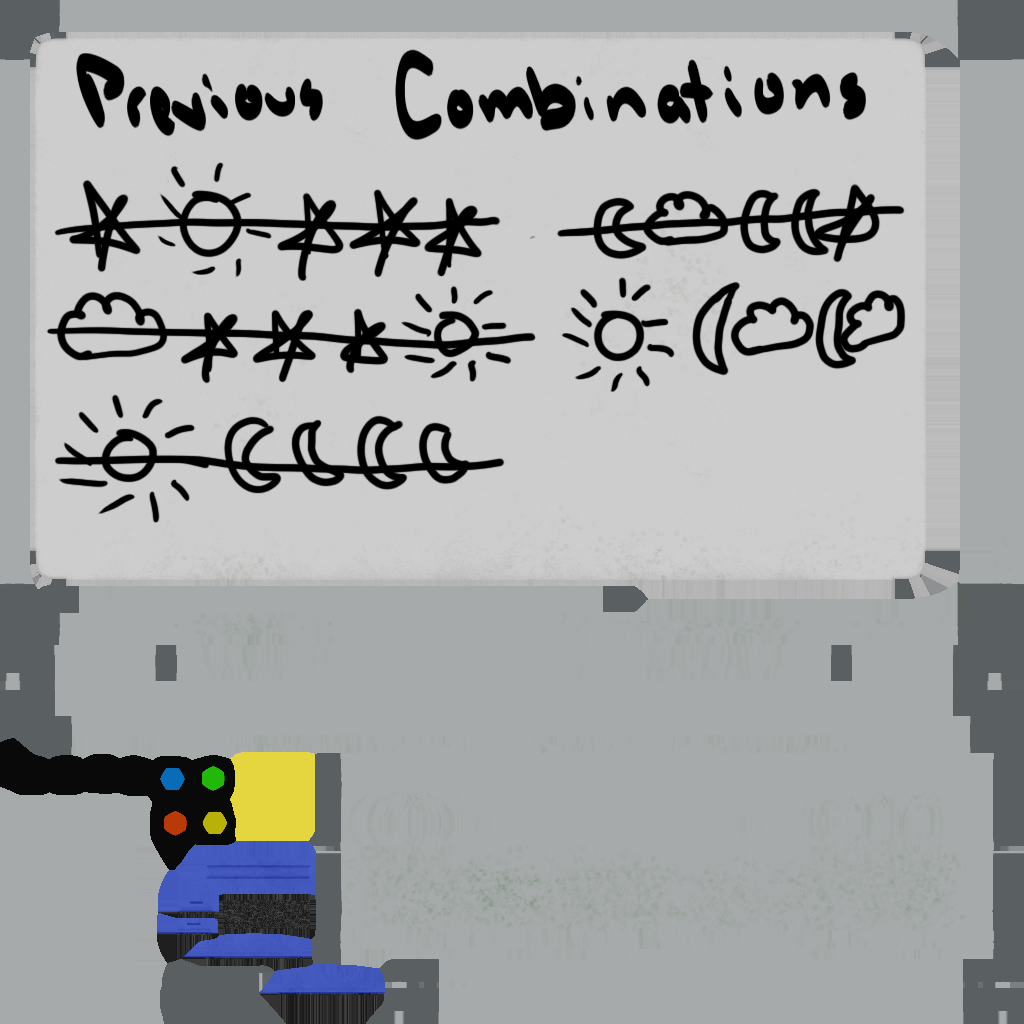 Previous Combinations